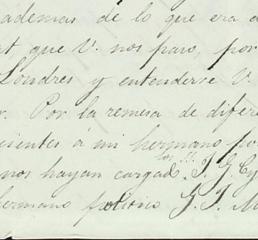 ademas de lo que era d
que V. nos puso, por
Londres y entenderse V.
Por la remesa de difere
cientes á mi hermano po
nos hayan cargado los Srs. J. G.
hermano politico G. J. M